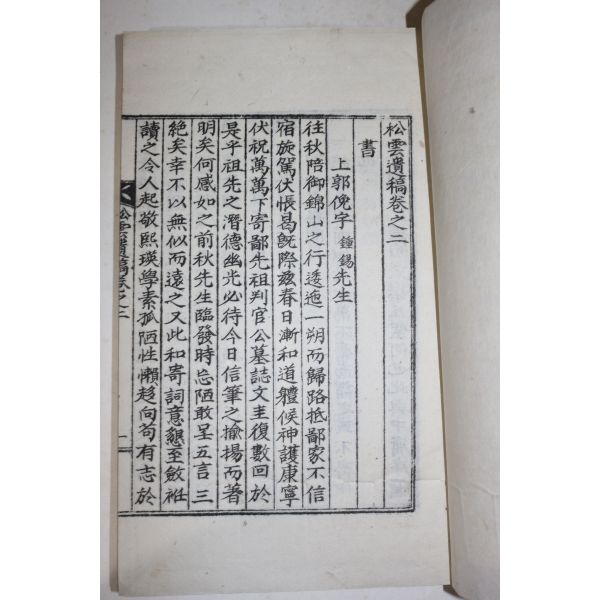 松雲遺稿卷之二
書
上郭俛宇 鍾錫 先生
往秋陪御錦山之行逶迤一朔而歸路抵鄙家不信
宿旋駕伏悵曷旣際玆春日漸和道體候神護康寧
伏祝萬萬下寄鄙先祖判官公墓誌文圭復數回於
是乎祖先之潛德幽光必待今日信筆之揄揚而著
明矣何感如之前秋先生臨發時忘陋敢呈五言三
絶矣幸不以無似而遠之又此和寄詞意懇至斂袵
讀之令人起敬熙瑛學素孤陋性懶趍向苟有志於
松雲遺稿卷之二
一